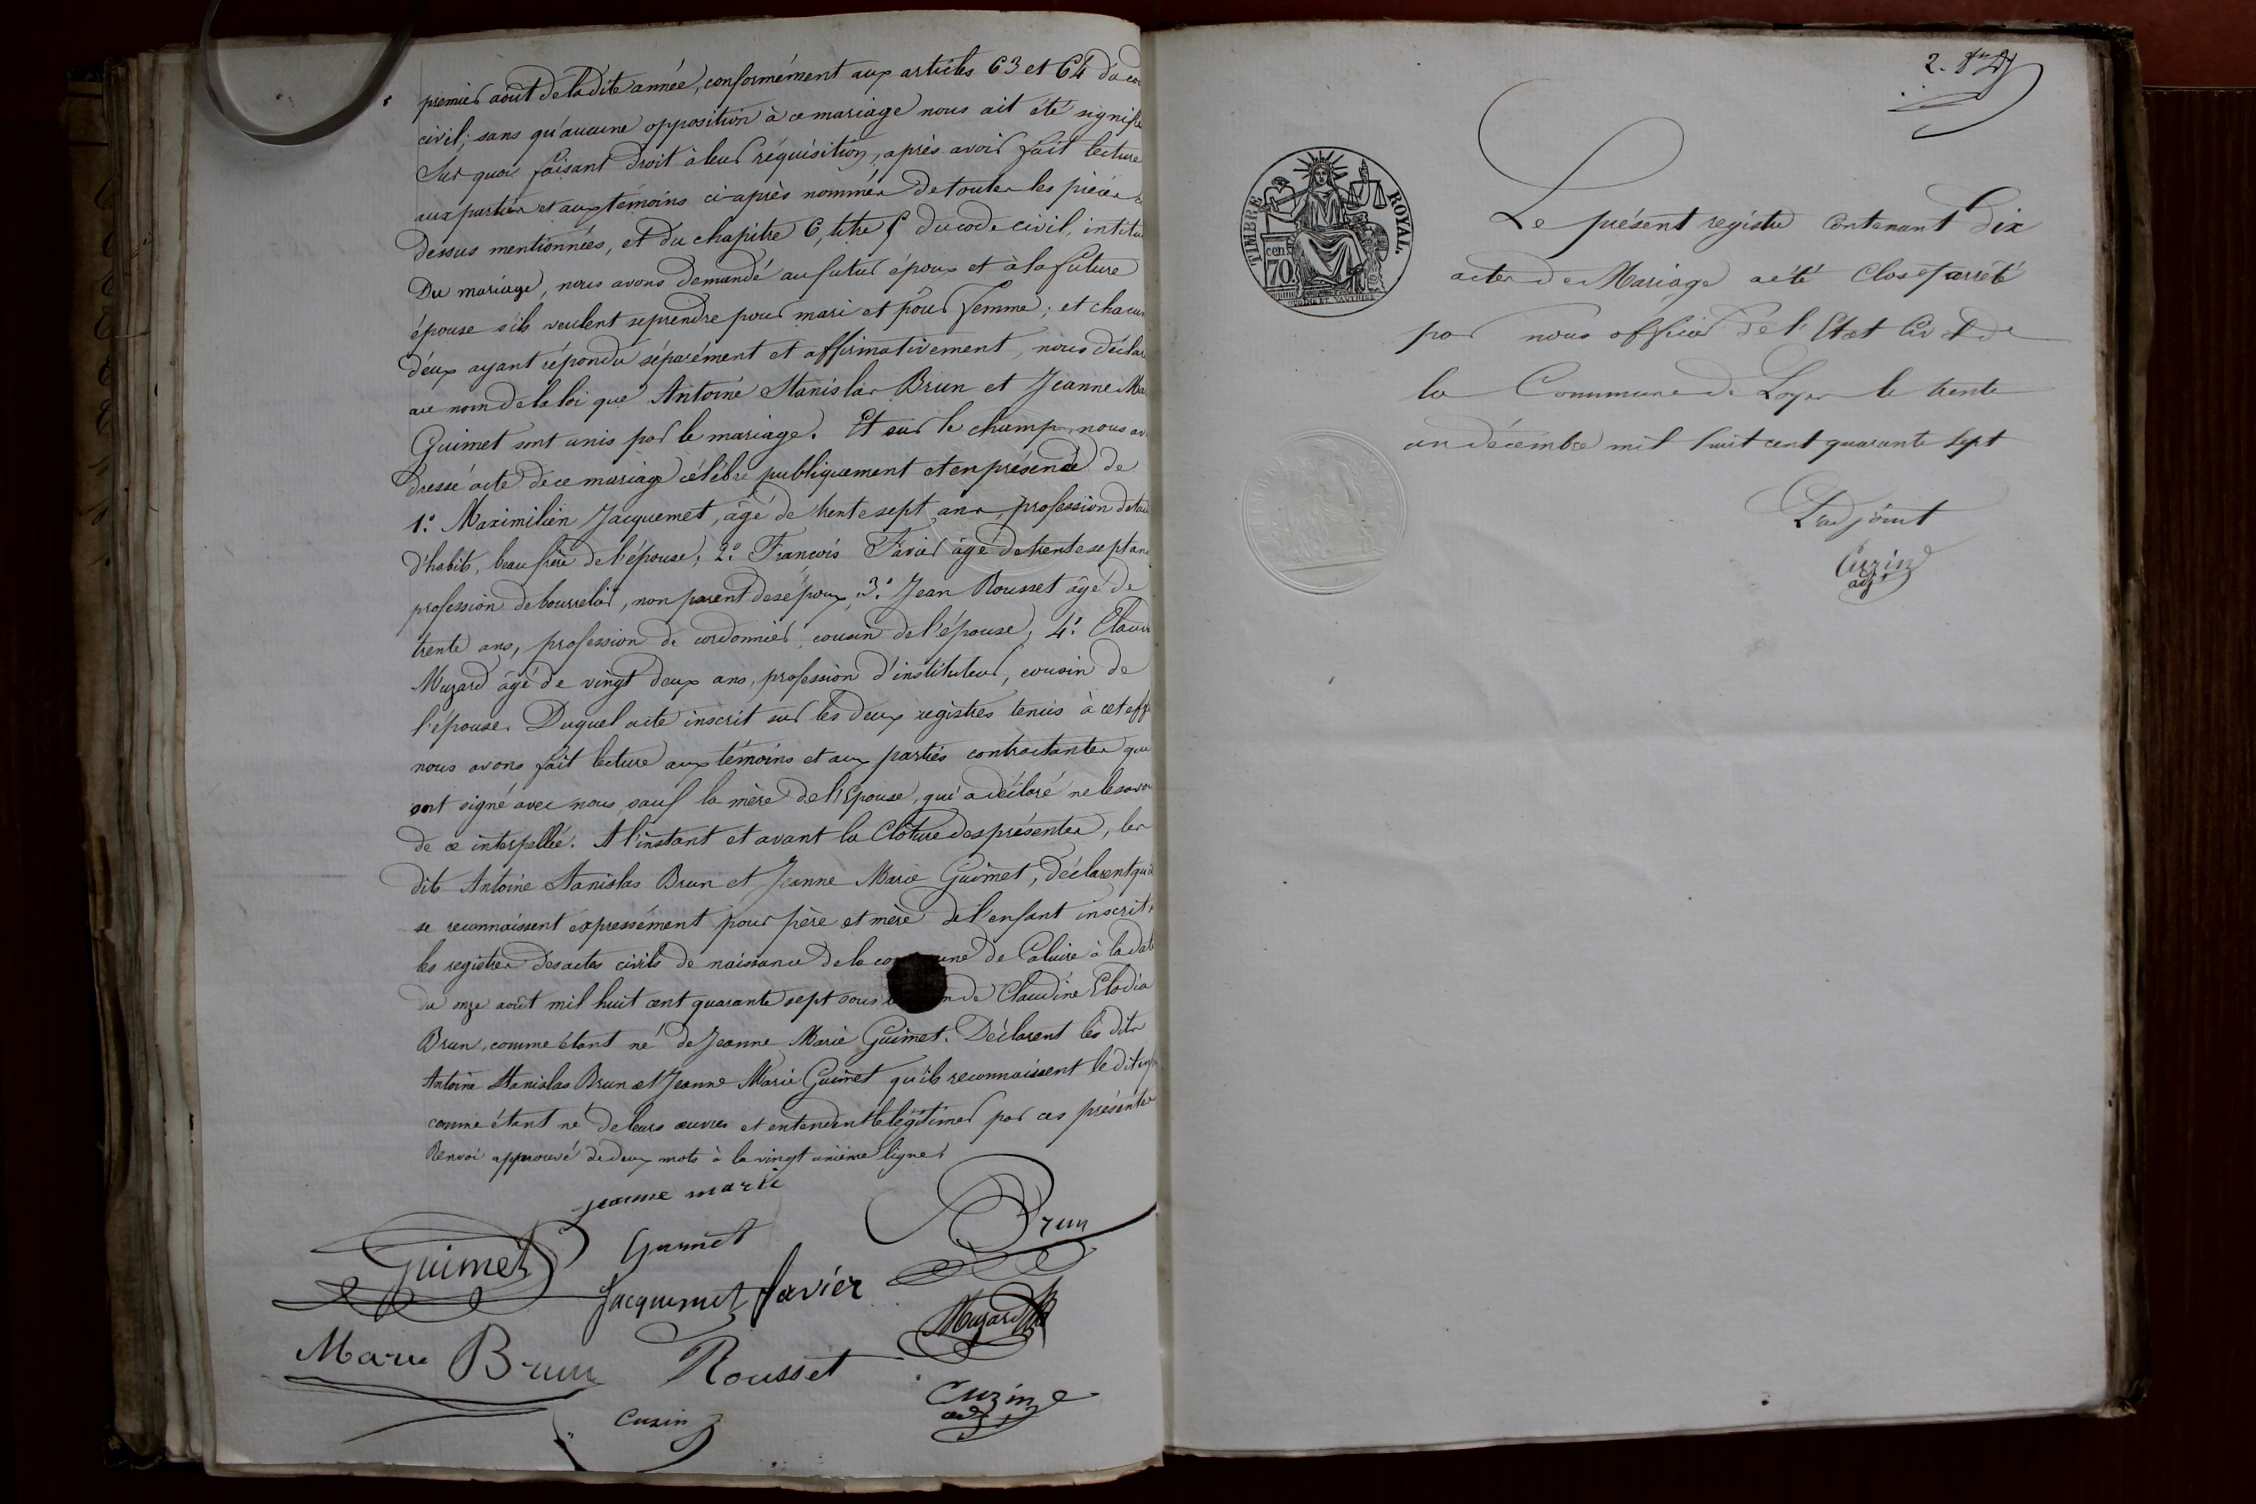 premier août de la dite année, conformément aux articles 63 et 64 du co
civil; sans qu'aucune opposition à ce mariage nous ait été signifi
Sur quoi faisant droit à leur réquisition, après avoir fait lecture
aux parties et aux témoins ci-après nommés de toutes les pièces
dessus mentionnées, et du chapitre 6, titre 5 du code civil, intitu
Du mariage, nous avons demandé au futur époux et à la future
épouse s'ils veulent se prendre pour mari et pour femme; et chacun
d'eux ayant répondu séparément et affirmativement, nous déclar
au nom de la loi que Antoine Stanislas Brun et Jeanne Ma
Guimet sont unis par le mariage. Et sur le champ nous av
dressé acte de ce mariage célébré publiquement et en présence de
1.º Maximilien Jacquemet, âgé de trente sept ans, profession de tai
d'habits, beau frère de l'épouse; 2.º François Favier âgé de trente sept ans
profession de bourrelier, non parent des époux, 3.º Jean Rousset âgé de
trente ans, profession de cordonnier, cousin de l'épouse; 4.º Claude
Muzard âgé de vingt deux ans, profession d'instituteur, cousin de
l'épouse. Duquel acte inscrit sur les deux registres tenus à cet eff
nous avons fait lecture aux témoins et aux parties contractantes qui
ont signé avec nous sauf la mère de l'épouse, qui a déclaré ne le savoi
de ce interpellée. A l'instant et avant la clôture des présentes, les
dits Antoine Stanislas Brun et Jeanne Marie Guimet, déclarent qu'il
se reconnaissent expressément pour père et mère de l'enfant inscrit
les registres des actes civils de naissance de la co une de Caluire à la date
du onze août mil huit cent quarante sept sous de Claudine Elodia
Brun, comme étant né de Jeanne Marie Guimet. Déclarent les dits
Antoine Stanislas Brun et Jeanne Marie Guimet qu'ils reconnaissent le dit
comme étant né de leurs œuvres et entendent le légitimer par ces présentes
Renvoi approuvé de deux mots à la vingt unième ligne
jeanne marie
Guimet
Guimet
Brun
Jacquemet favier
Muzard
Marie Brun
Rousset
Cuzin
adj
Cuzin
2.
TIMBRE ROYAL
cen
70
Le présent registre contenant dix
actes de Mariage a été clos et arrêté
par nous officier de l'Etat Civil de
la Commune de Loyes le trente
un décembre mil huit cent quarante sept
L'adjoint
Cuzin
adj